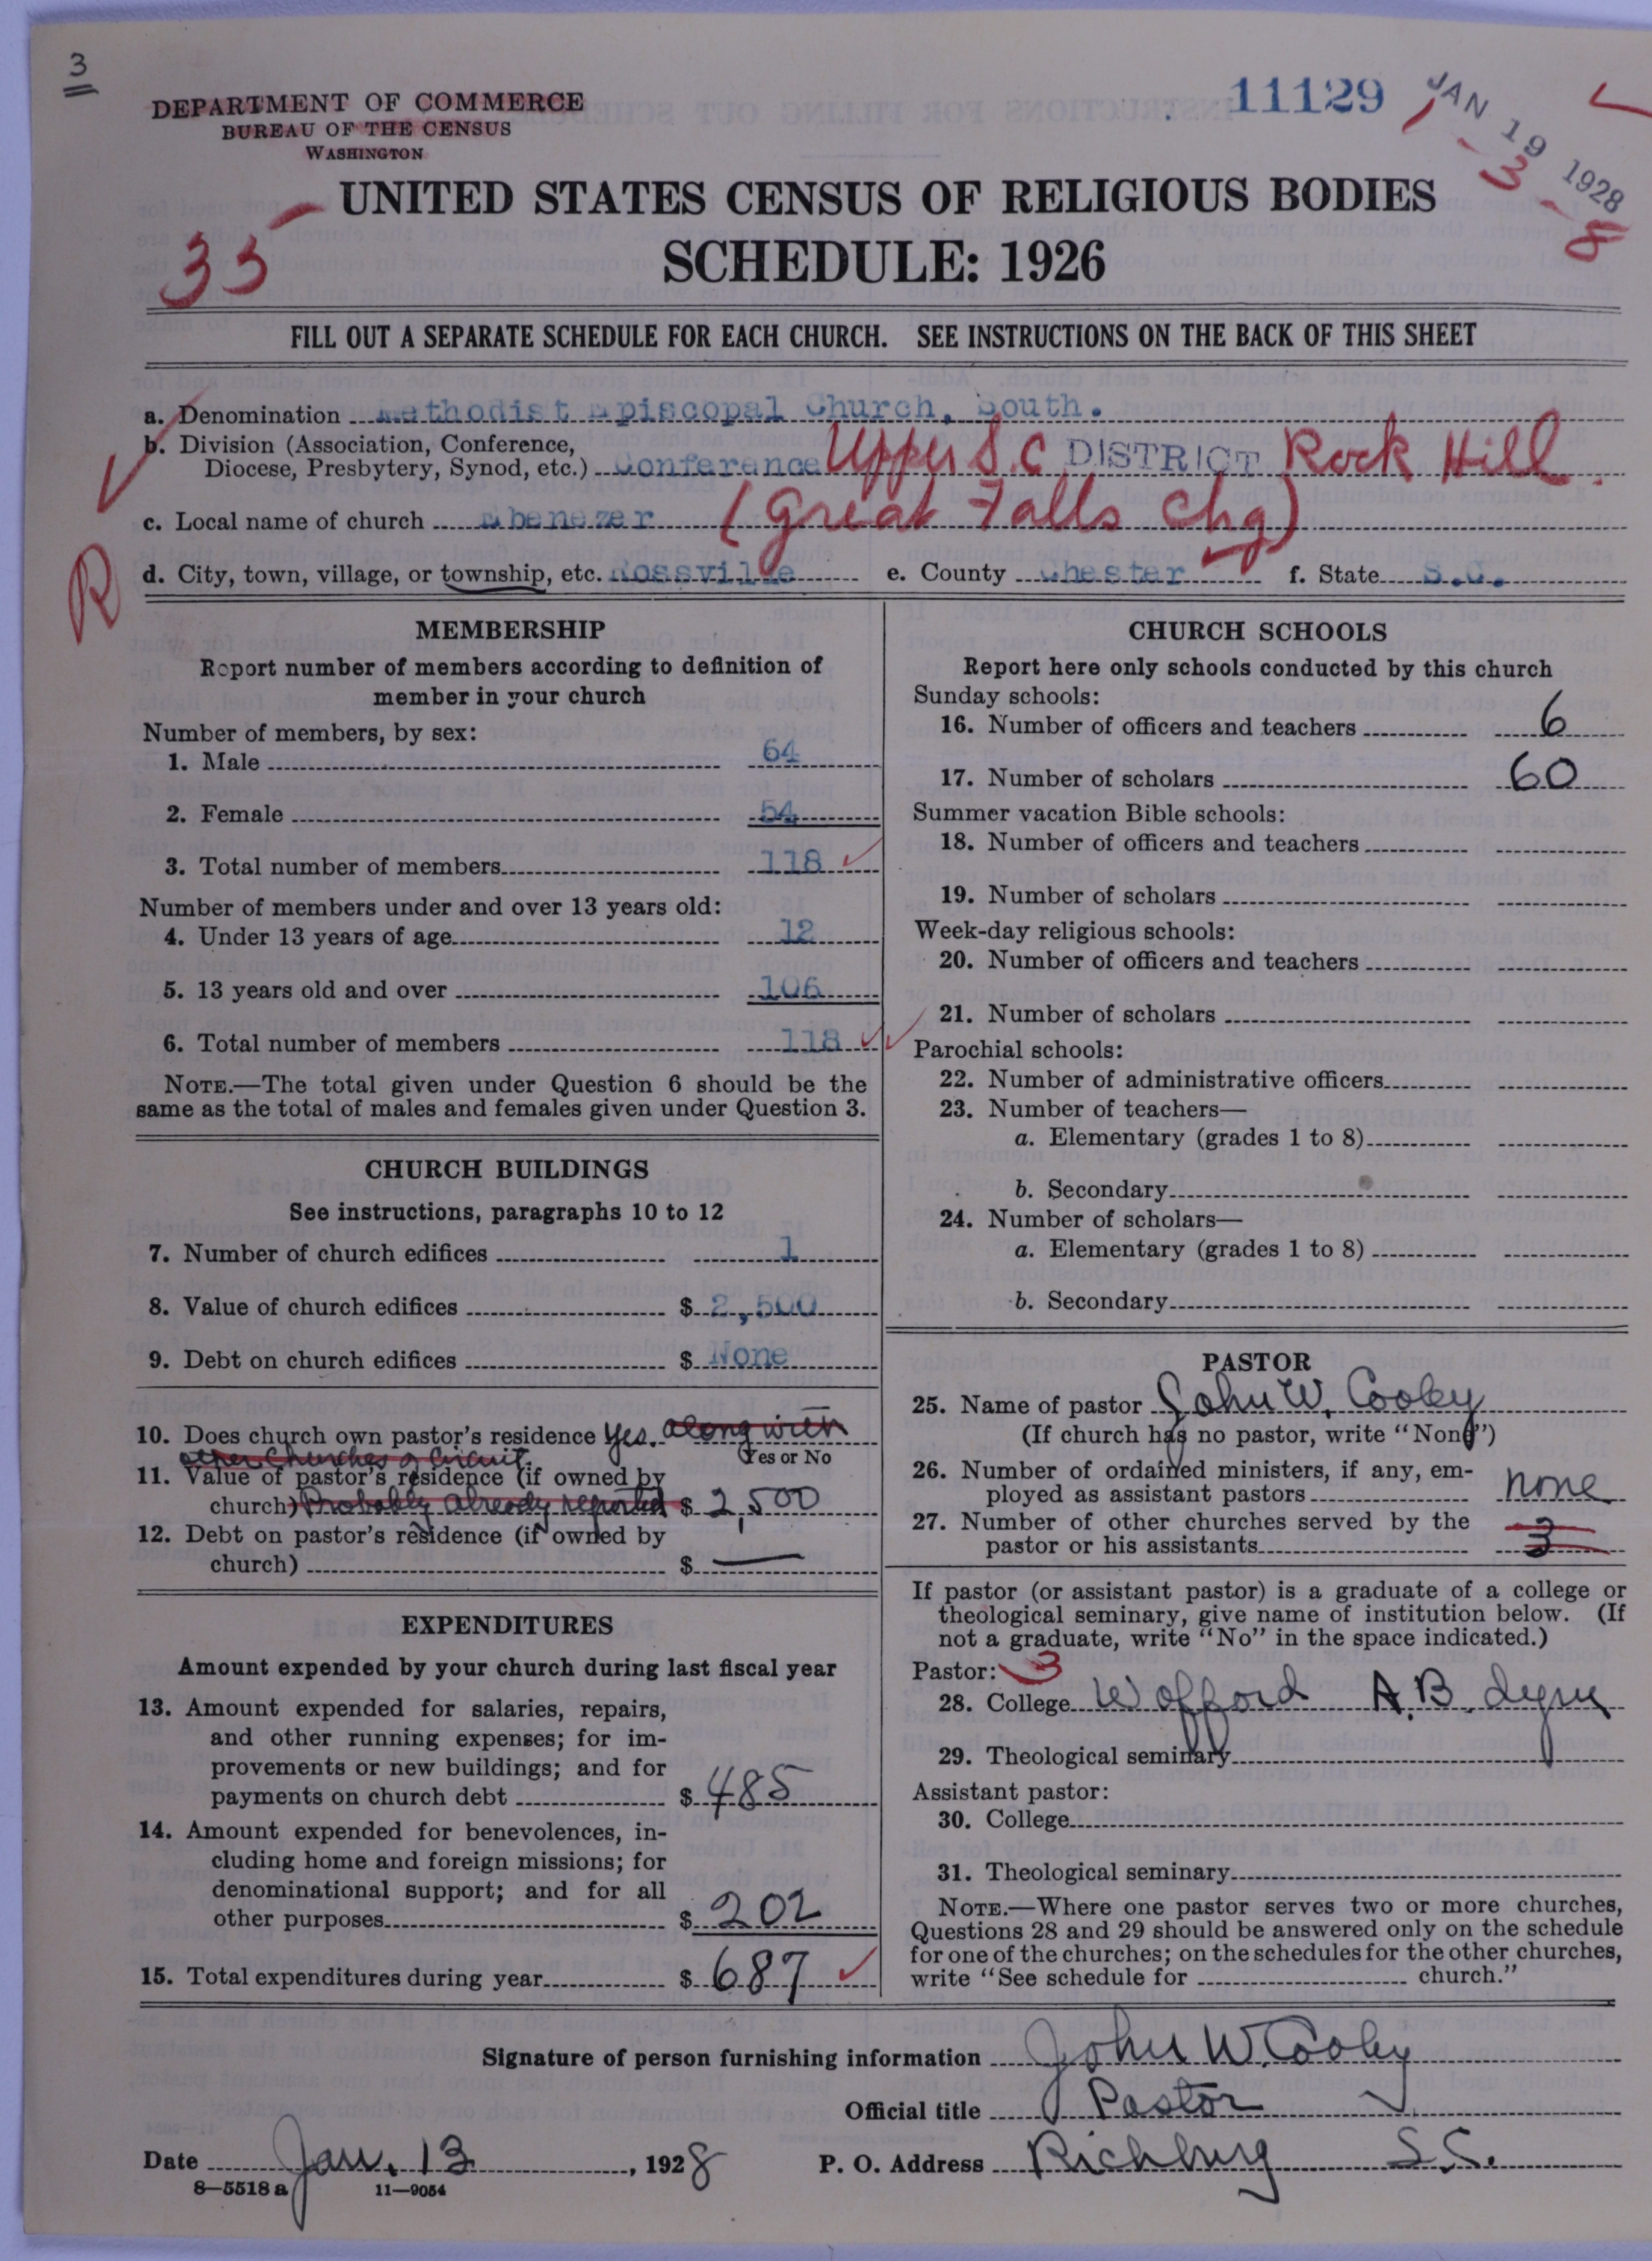 3
DEPARTMENT OF COMMERCE
BUREAU OF THE CENSUS
WASHINGTON
11129
JAN 19 1928
1 - 3 - 8
35
UNITED STATES CENSUS OF RELIGIOUS BODIES
SCHEDULE: 1926
FILL OUT A SEPARATE SCHEDULE FOR EACH CHURCH. SEE INSTRUCTIONS ON THE BACK OF THIS SHEET
a. Denomination Methodist Episcopal Church, South.
b. Division (Association, Conference,
Diocese, Presbytery, Synod, etc.) Conference Upper S.C DISTRICT Rock Hill.
c. Local name of church Ebenezer (Great Falls Chg)
R
d. City, town, village, or township, etc. Rossville e. County Chester f. State S.C.
MEMBERSHIP
Report number of members according to definition of
member in your church
Number of members, by sex:
1. Male 64
2. Female 54
3. Total number of members 118
Number of members under and over 13 years old:
4. Under 13 years of age 12
5. 13 years old and over 106
6. Total number of members 118
NOTE.—The total given under Question 6 should be the
same as the total of males and females given under Question 3.
CHURCH BUILDINGS
See instructions, paragraphs 10 to 12
7. Number of church edifices 1
8. Value of church edifices $ 2,500
9. Debt on church edifices $ None
10. Does church own pastor's residence Yes. along with
Yes or No
other Churches of Circuit.
11. Value of pastor's residence (if owned by
church) Probably already reported $ 2,500
12. Debt on pastor's residence (if owned by
church) $ —
EXPENDITURES
Amount expended by your church during last fiscal year
13. Amount expended for salaries, repairs,
and other running expenses; for im-
provements or new buildings; and for
payments on church debt $ 485
14. Amount expended for benevolences, in-
cluding home and foreign missions; for
denominational support; and for all
other purposes $ 202
15. Total expenditures during year $ 687
CHURCH SCHOOLS
Report here only schools conducted by this church
Sunday schools:
16. Number of officers and teachers 6
17. Number of scholars 60
Summer vacation Bible schools:
18. Number of officers and teachers
19. Number of scholars
Week-day religious schools:
20. Number of officers and teachers
21. Number of scholars
Parochial schools:
22. Number of administrative officers
23. Number of teachers—
a. Elementary (grades 1 to 8)
b. Secondary
24. Number of scholars—
a. Elementary (grades 1 to 8)
b. Secondary
PASTOR
25. Name of pastor John W. Cooley
(If church has no pastor, write "None")
26. Number of ordained ministers, if any, em-
ployed as assistant pastors none
27. Number of other churches served by the
pastor or his assistants 3
If pastor (or assistant pastor) is a graduate of a college or
theological seminary, give name of institution below. (If
not a graduate, write "No" in the space indicated.)
Pastor: 3
28. College Wofford A.B. degree
29. Theological seminary
Assistant pastor:
30. College
31. Theological seminary
NOTE.—Where one pastor serves two or more churches,
Questions 28 and 29 should be answered only on the schedule
for one of the churches; on the schedules for the other churches,
write "See schedule for church."
Signature of person furnishing information John W. Cooley
Official title Pastor
Date Jan. 13, 1928 P. O. Address Richburg S.C.
8—5518 a 11—9054